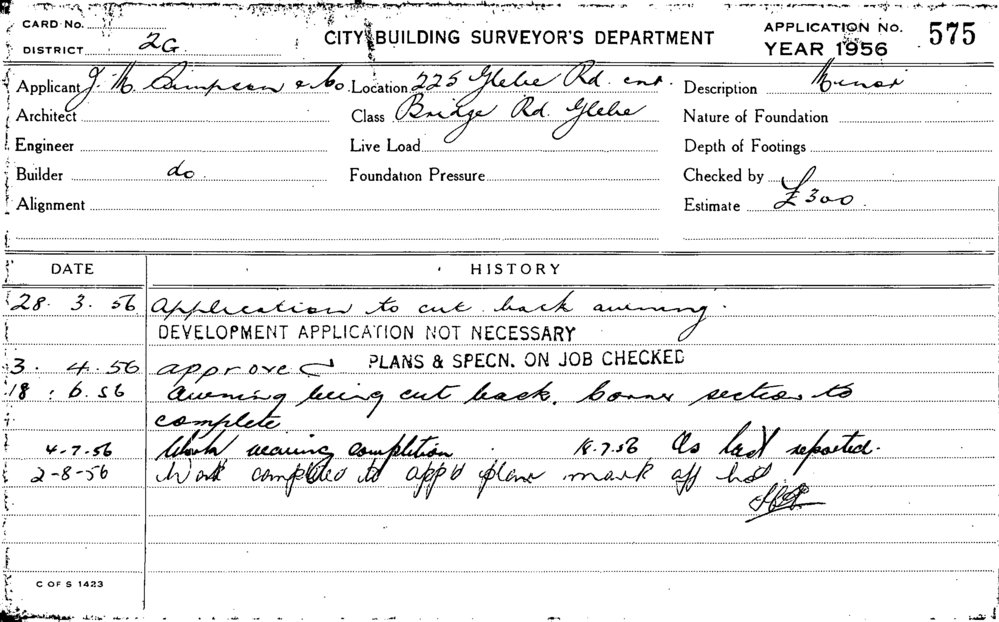 CARD No.
DISTRICT 2G
CITY BUILDING SURVEYOR'S DEPARTMENT
APPLICATION No. 575
YEAR 1956
Applicant J. M. Simpson & Co. Location 225 Glebe Rd. cnr. Description Minor
Architect Class Bridge Rd. Glebe Nature of Foundation
Engineer Live Load Depth of Footings
Builder do Foundation Pressure Checked by
Alignment Estimate £300
DATE HISTORY
28. 3. 56 Application to cut back awning.
DEVELOPMENT APPLICATION NOT NECESSARY
3. 4. 56 approved PLANS & SPECN. ON JOB CHECKED
18. 6. 56 Awning being cut back. Corner section to
complete
4-7-56 Work nearing completion 18.7.56 As last reported.
2-8-56 Work completed to app'd plans mark off
C OF S 1423